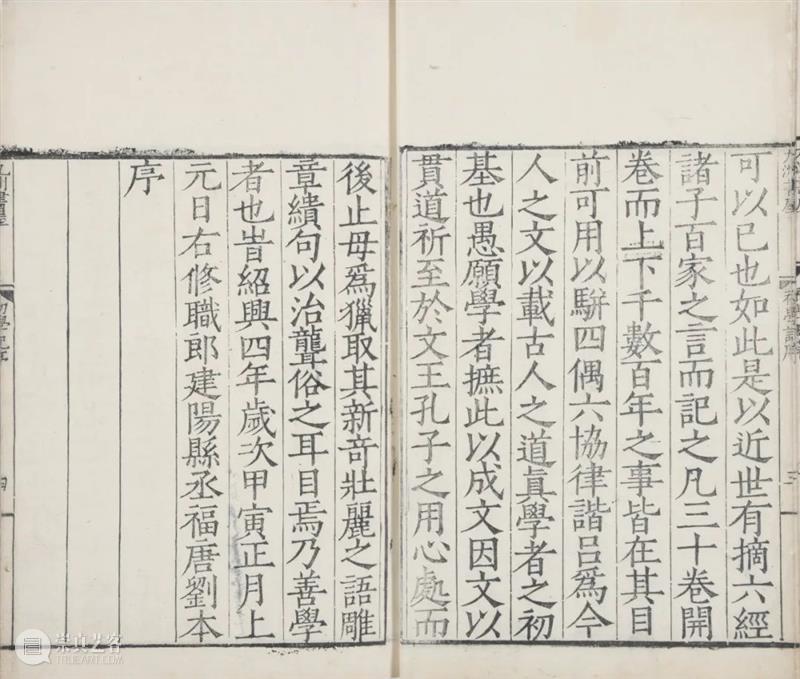 可以已也如此是以近世有摘六經
諸子百家之言而記之凡三十卷開
卷而上下千數百年之事皆在其目
前可用以駢四偶六協律諧呂爲今
人之文以載古人之道眞學者之初
基也愚願學者摭此以成文因文以
貫道祈至於文王孔子之用心處而
後止毋爲獵取其新奇壯麗之語雕
章繢句以治聾俗之耳目焉乃善學
者也旹紹興四年歲次甲寅正月上
元日右修職郎建陽縣丞福唐劉本
序
四
崇真艺客
TRUEART.COM